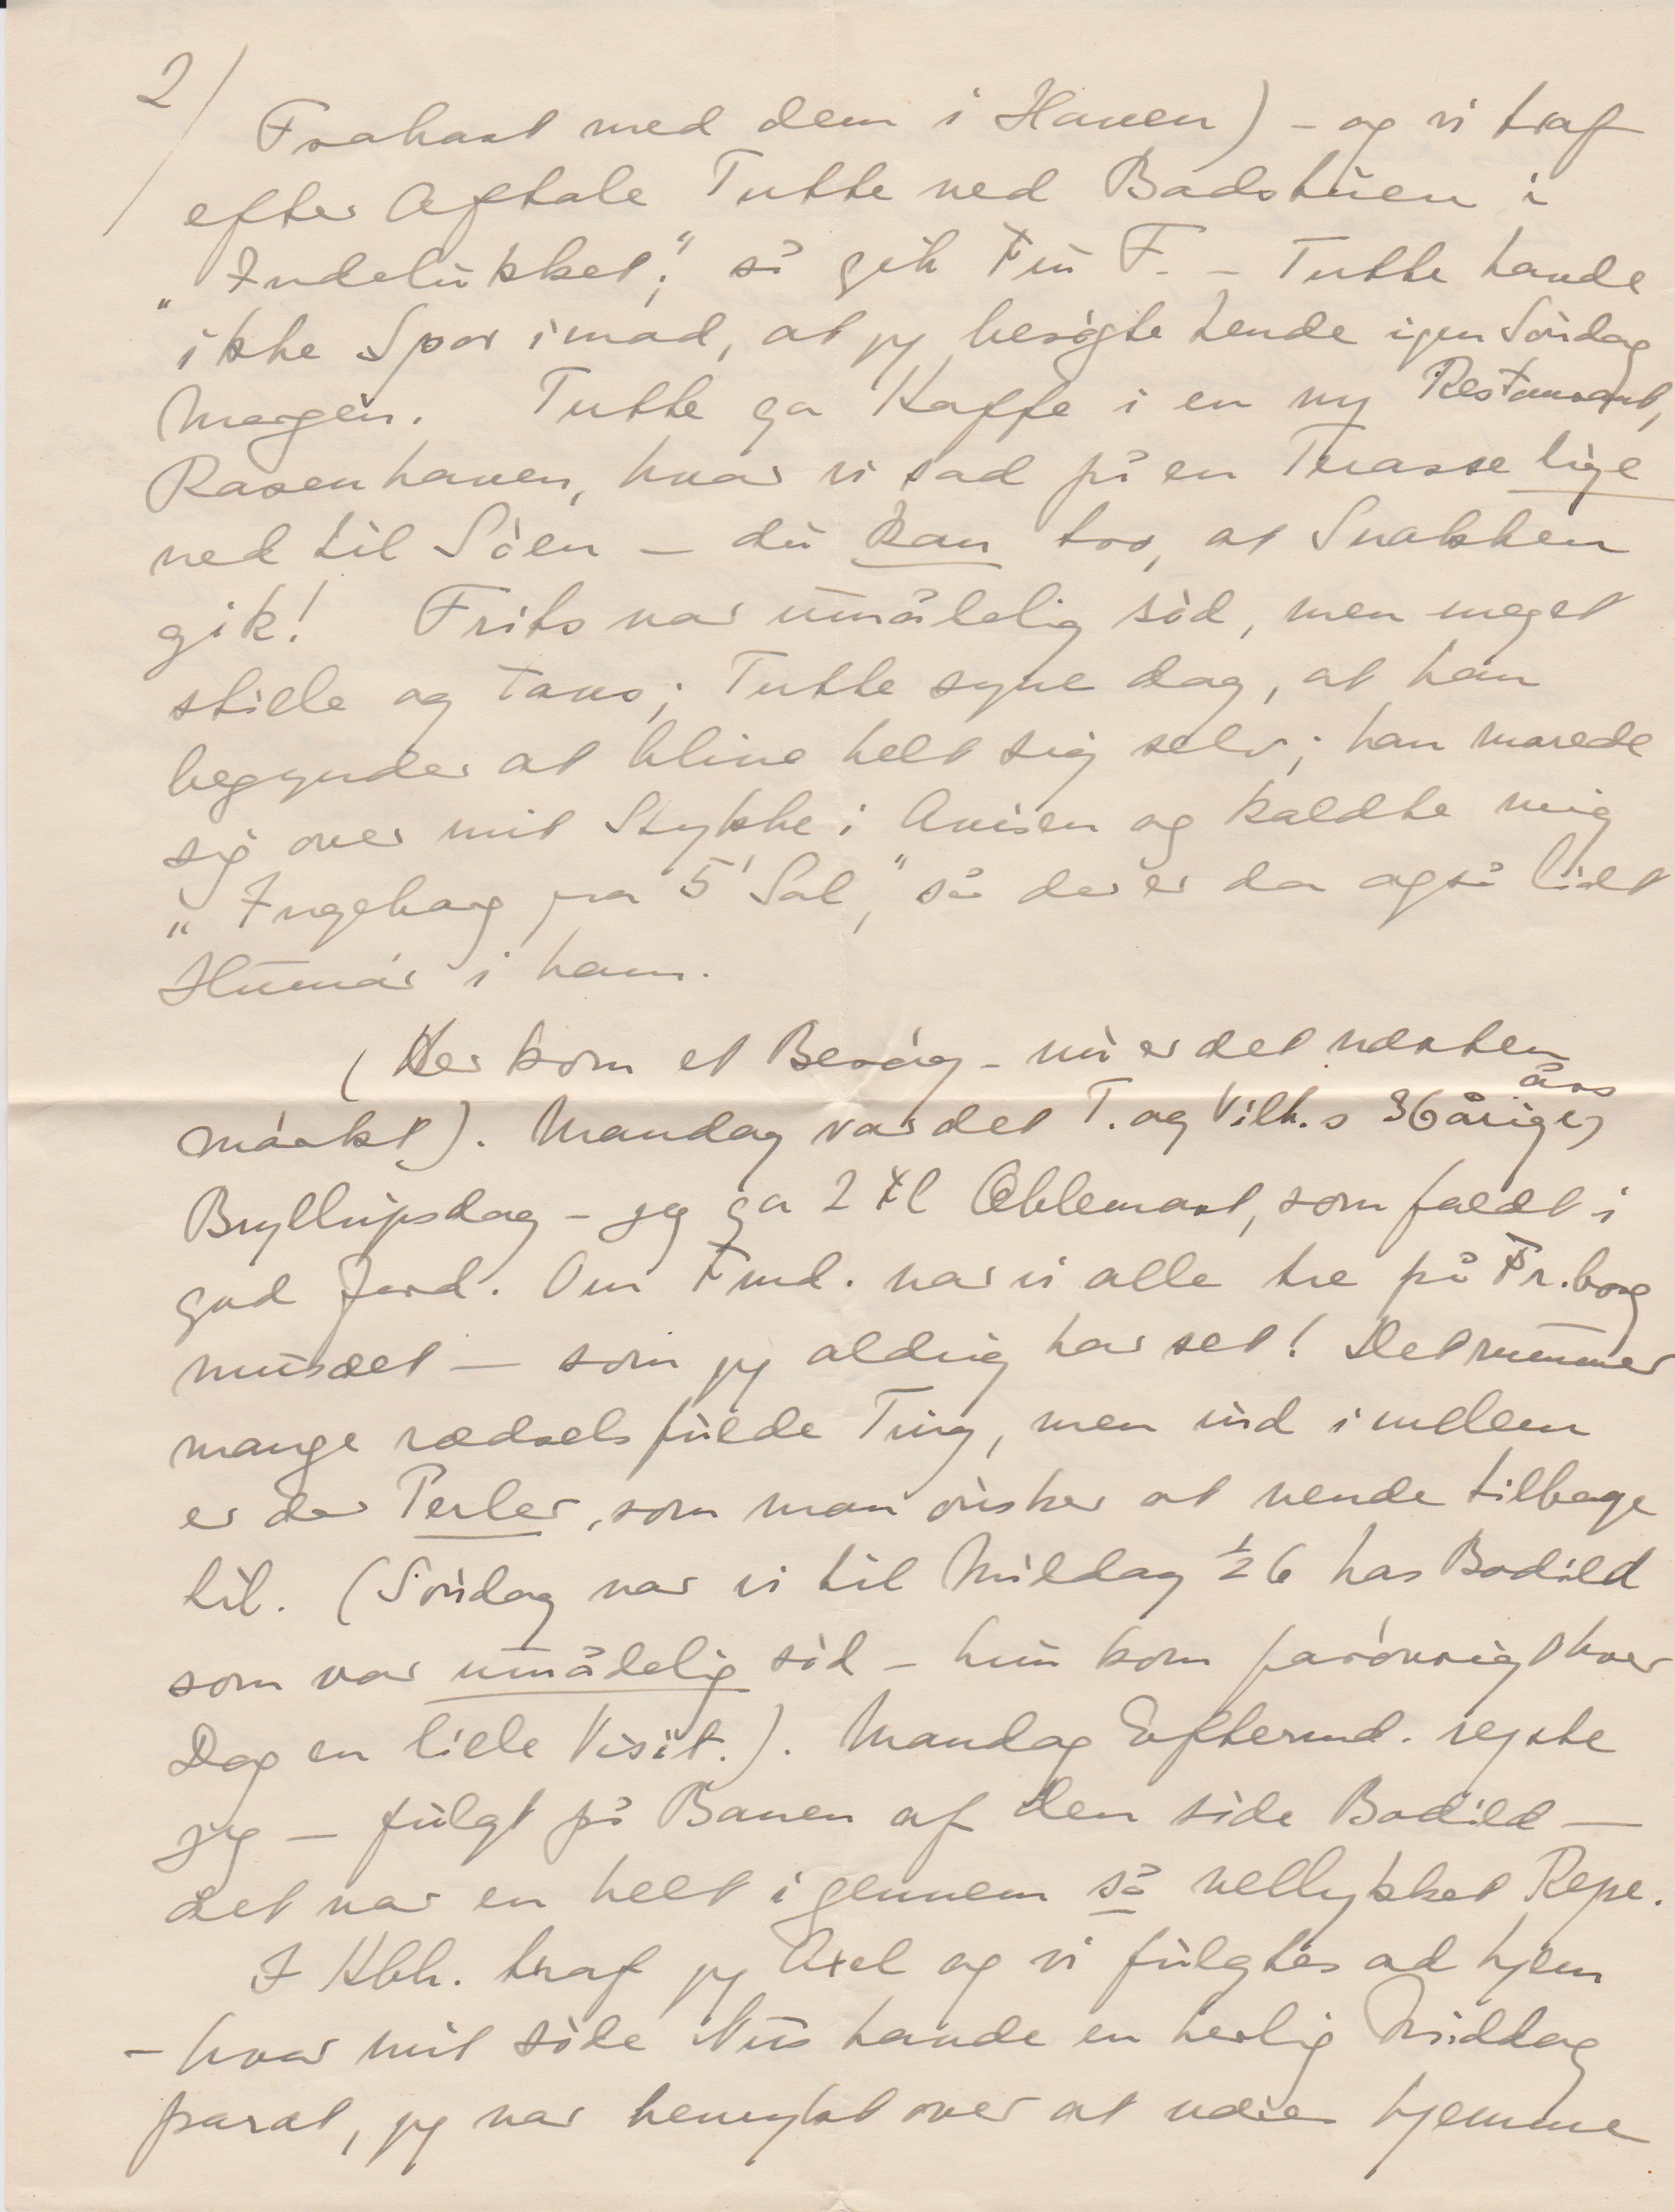 2/
Frokost med dem i Haven) - og vi traf
efter Aftale Tutte ved Badstuen i
"Indelukket"; så gik Fru F. - Tutte havde
ikke Spor imod, at jeg besøgte hende igen Søndag
Morgen. Tutte ga Kaffe i en ny Restaurant,
Rosenhaven, hvor vi sad på en Terasse lige
ned til Søen - du kan tro, at Snakken
gik! Frits var umålelig sød, men meget
stille og tavs; Tutte synes dog, at han
begynder at blive helt sig selv; han morede
sig over mit Stykke i Avisen og kaldte mig
"Ingeborg fra 5' Sal," så der er da også lidt
Humør i ham.
(Her kom et Besøg - nu er det næsten
mørkt). Mandag var det T. og Vilh.s 36 årige
års
Bryllupsdag - jeg ga 2 Fl Æblemost, som faldt i
god Jord. Om Fmd. var vi alle tre på Fr.borg
musæet - som jeg aldrig har set! Det rummer
mange rædselsfulde Ting, men ind imellem
er der Perler, som man ønsker at vende tilbage
til. (Søndag var vi til Middag ½ 6 hos Bodild
som var umådelig sød - hun kom forøvrigt hver
Dag en lille Visit.). Mandag Eftermd. rejste
jeg - fulgt på Banen af den søde Bodild -
det var en helt igennem så vellykket Rejse.
I Kbh. traf jeg Axel og vi fulgtes ad hjem
- hvor mit søde Nus havde en herlig Middag
parat, jeg var henrykt over at være hjemme